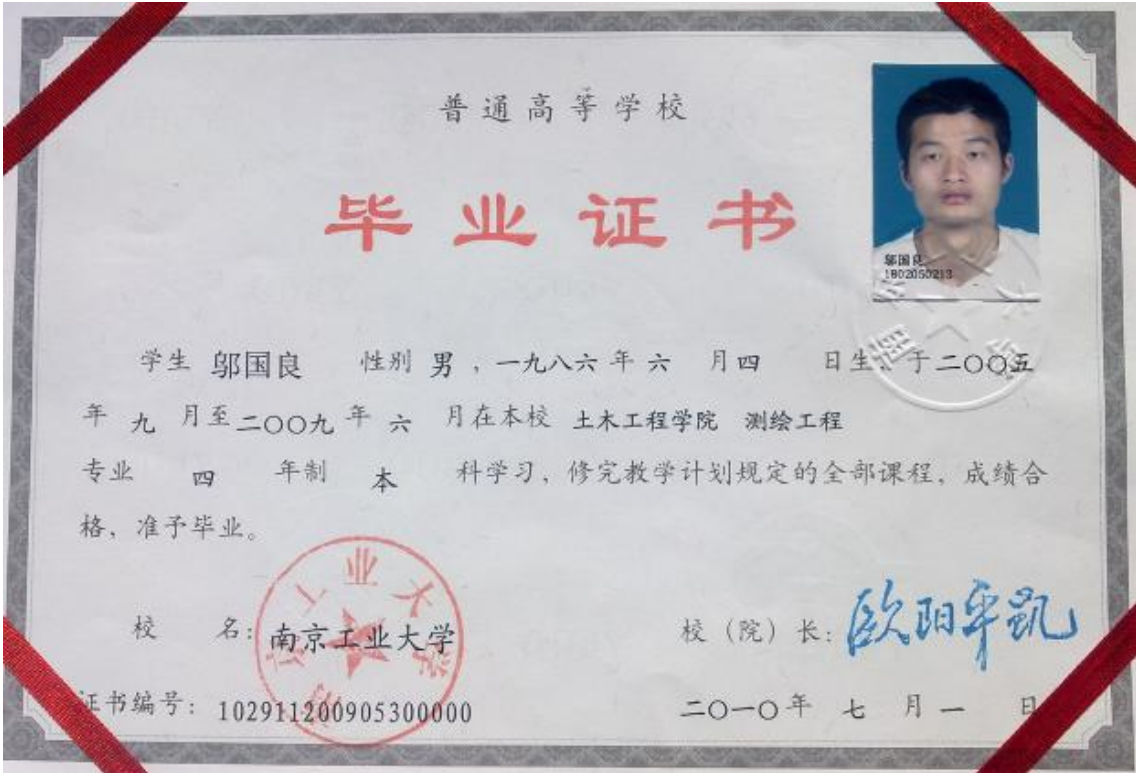 普通高等学校
毕业证书
邬国良
1802050213
学生 邬国良 性别 男 ，一九八六 年 六 月 四 日生，于二〇〇五
年 九 月至 二〇〇九 年 六 月在本校 土木工程学院 测绘工程
专业 四 年制 本 科学习，修完教学计划规定的全部课程，成绩合
格，准予毕业。
校 名：南京工业大学
校（院）长：欧阳平凯
证书编号：102911200905300000
二〇一〇 年 七 月 一 日
南京工业大学